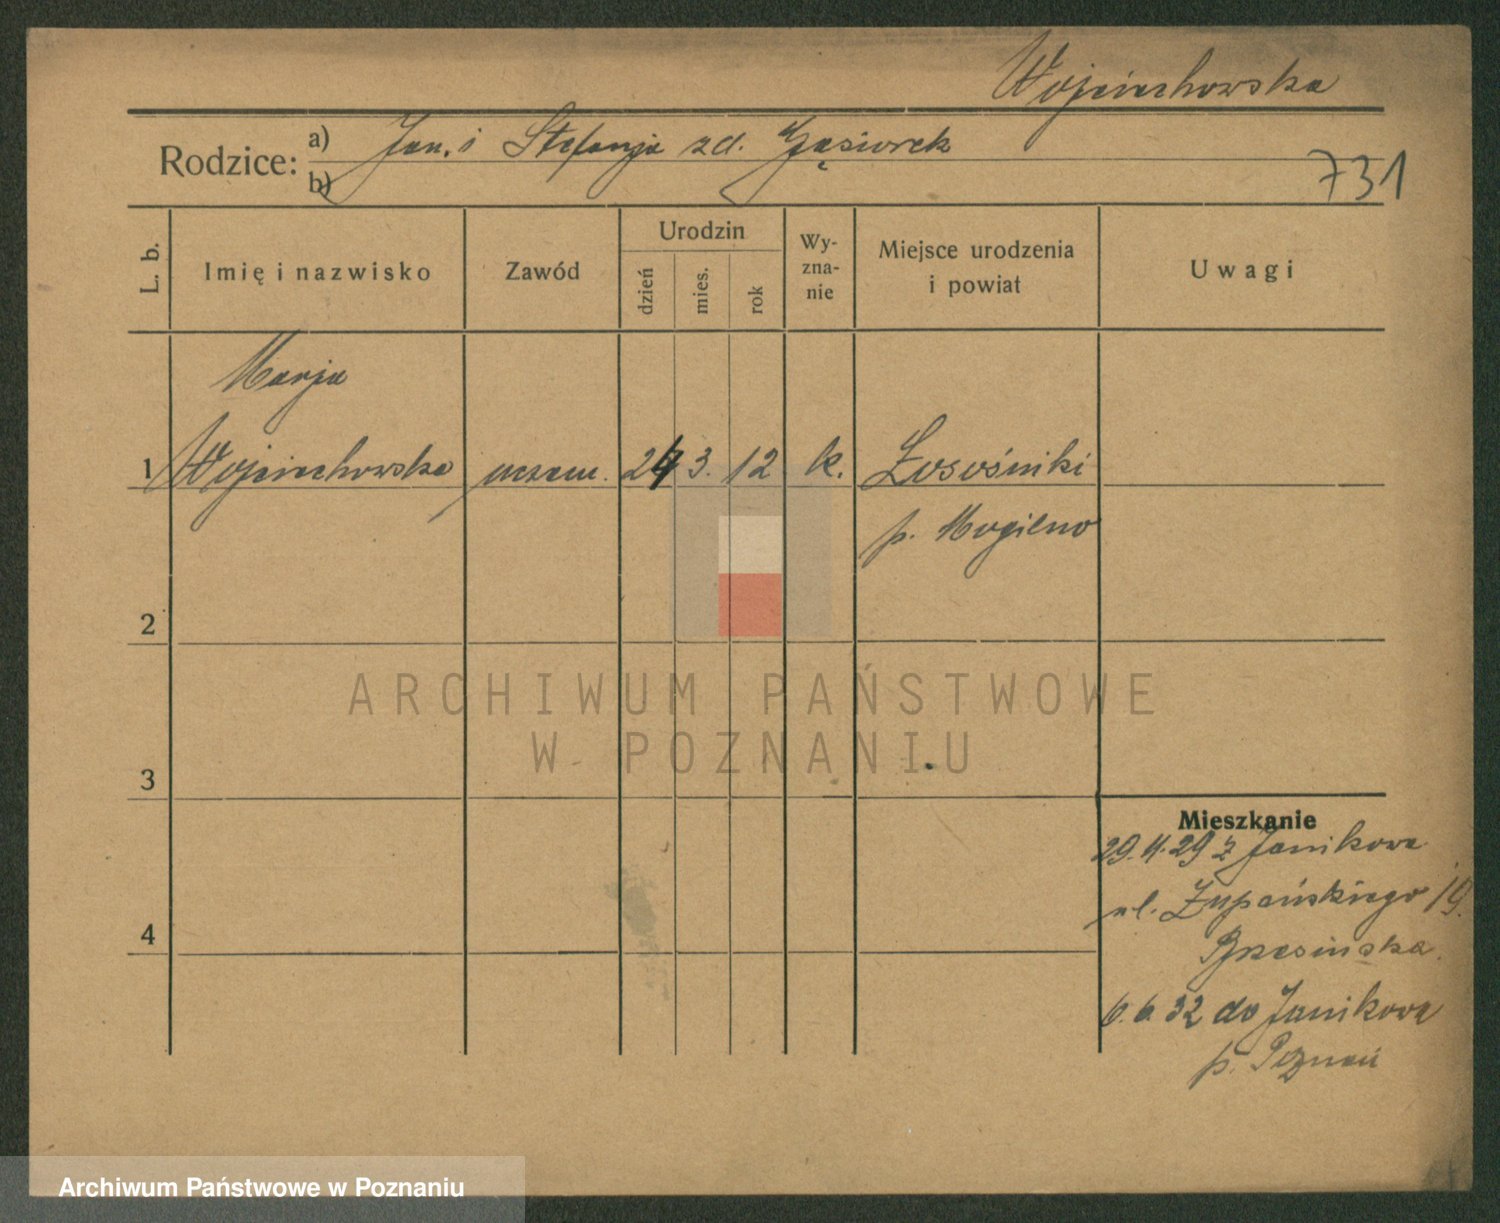 Wojciechowska
Rodzice: a) Jan. i Stefanja zd. Gąsiorek
b)
731
L. b.
Imię i nazwisko
Zawód
Urodzin
dzień
mies.
rok
Wy-
zna-
nie
Miejsce urodzenia
i powiat
Uwagi
Marja
1 Wojciechowska uczenn. 24 3. 12 k. Łosośniki
p. Mogilno
2
3
4
Mieszkanie
29.4.29 z Janikowa
ul. Żupańskiego 19.
Brzesińska.
6.6.32 do Janikowa
p. Poznań
ARCHIWUM PAŃSTWOWE
W POZNANIU
Archiwum Państwowe w Poznaniu